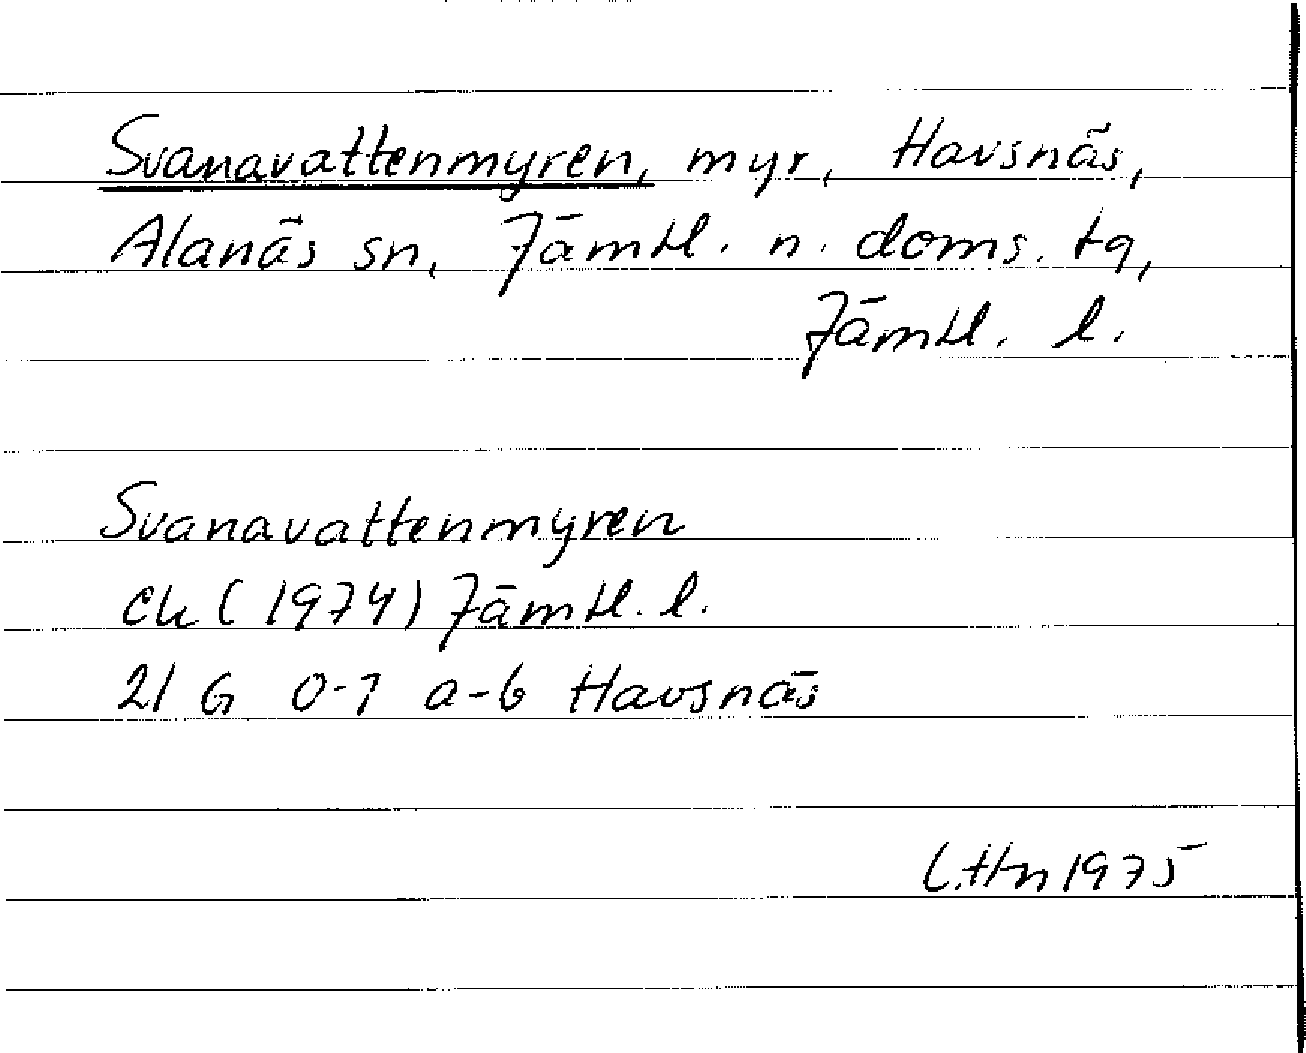 Svanavattenmyren, myr, Havsnäs,
Alanäs sn, Jämtl. n. doms. tg,
Jämtl. l.
Svanavattenmyren
Ek (1974) Jämtl. l.
21 G 0-1 a-b Havsnäs
L.Hn 1975